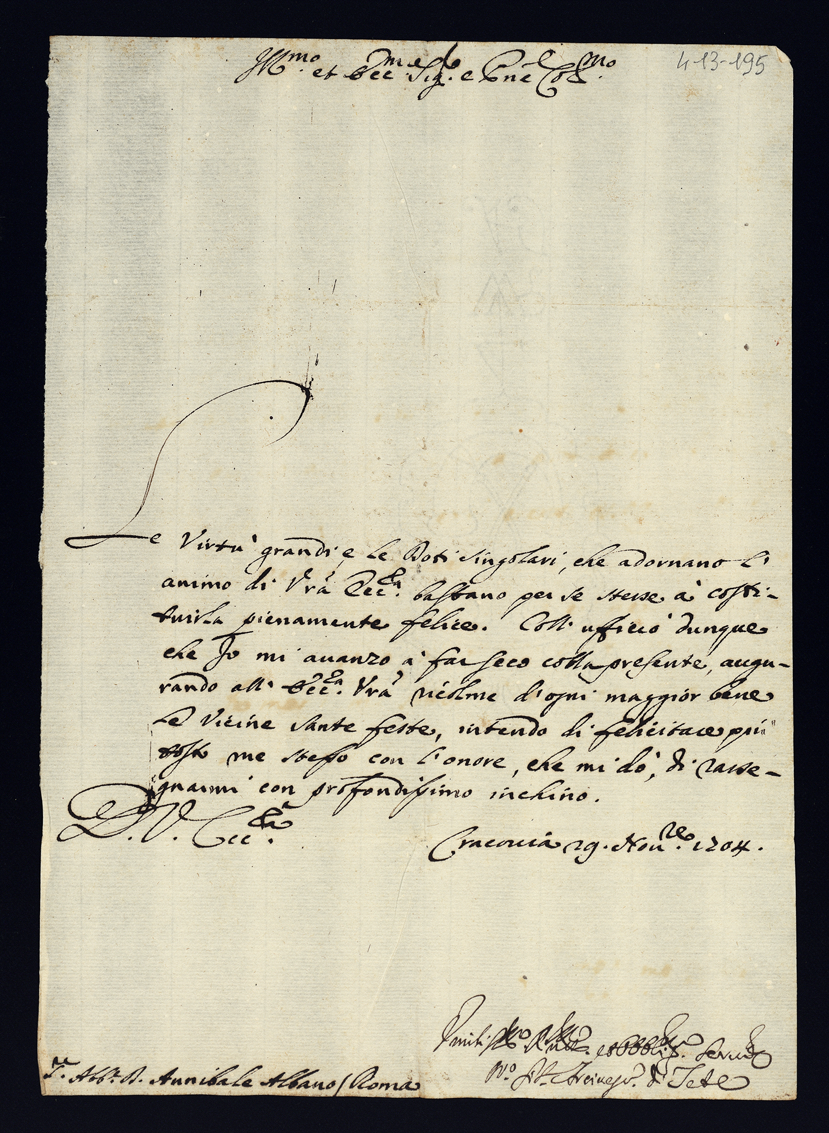 4-13-195
Ill.mo et Ecc.mo Sig.e e P.ne Col.mo
Le Virtu' grandi, e le Doti singolari, che adornano l'
animo di Vrã Ecc.za bastano per se stesse à costi-
tuirla pienamente felice. Coll' ufficio dunque
che Jo mi auanzo à far seco colla presente, augu-
rando all' Ecc.za Vrã ricolme d'ogni maggior bene
le Vicine sante feste, intendo di felicitare più
tosto me stesso con l'onore, che mi dò, di rasse-
gnarmi con profondissimo inchino.
D. V. Ecc.za
Cracouia 29. Nou.re 1704.
Humiliss.mo Diuot.mo et Obblig.mo Seru.re
di Tebe
Abb.e D. Annibale Albano / Roma